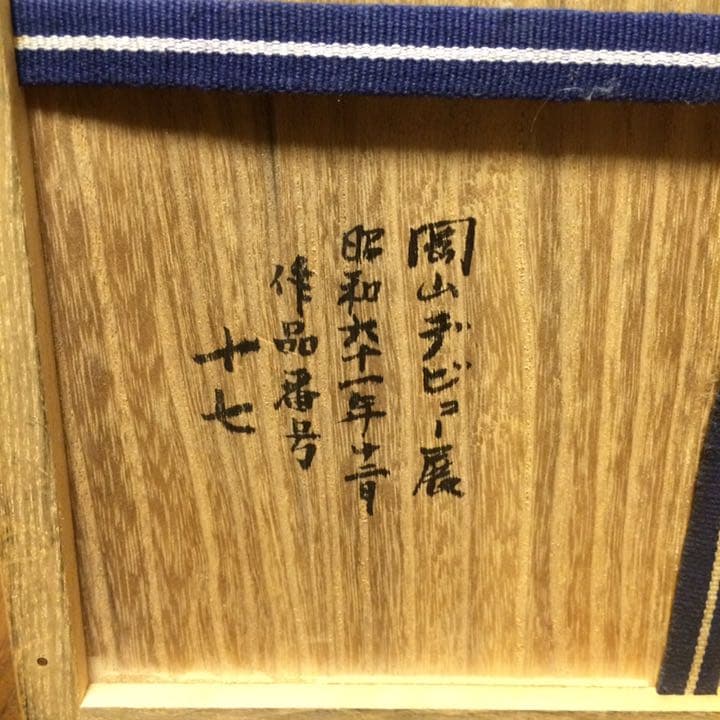 岡山デビュー展
昭和六十一年十二月
作品番号
十七